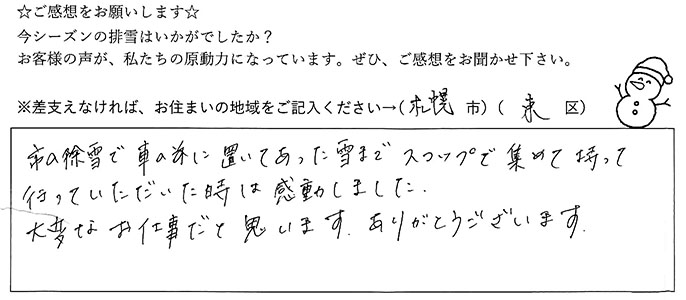 ☆ご感想をお願いします☆
今シーズンの排雪はいかがでしたか？
お客様の声が、私たちの原動力になっています。ぜひ、ご感想をお聞かせ下さい。
※差支えなければ、お住まいの地域をご記入ください→（札幌 市）（ 東 区）
市の除雪で車の氷に置いてあった雪までスコップで集めて持って
行っていただいた時は感動しました.
大変なお仕事だと思います.ありがとうございます.